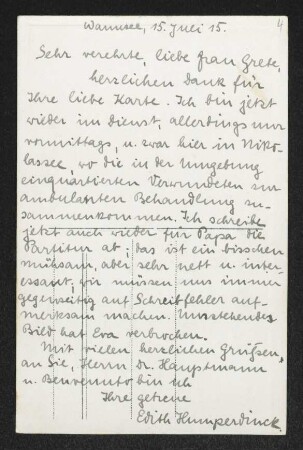 4
Wannsee, 15. Juli 15.
Sehr verehrte, liebe Frau Grete,
herzlichen Dank für
Ihre liebe Karte. Ich bin jetzt
wieder im Dienst, allerdings nur
vormittags, u. zwar hier in Niko-
lassee, wo die in der Umgebung
einquartierten Verwundeten zur
ambulanten Behandlung zu-
sammenkommen. Ich schreibe
jetzt auch wieder für Papa die
Partitur ab; das ist ein bisschen
mühsam, aber sehr nett u. inter-
essant; wir müssen uns immer
gegenseitig auf Schreibfehler auf-
merksam machen. Umstehendes
Bild hat Eva verbrochen.
Mit vielen herzlichen Grüßen,
an Sie, Herrn Dr. Hauptmann
u. Benvenuto bin ich
Ihre getreue
Edith Humperdinck.